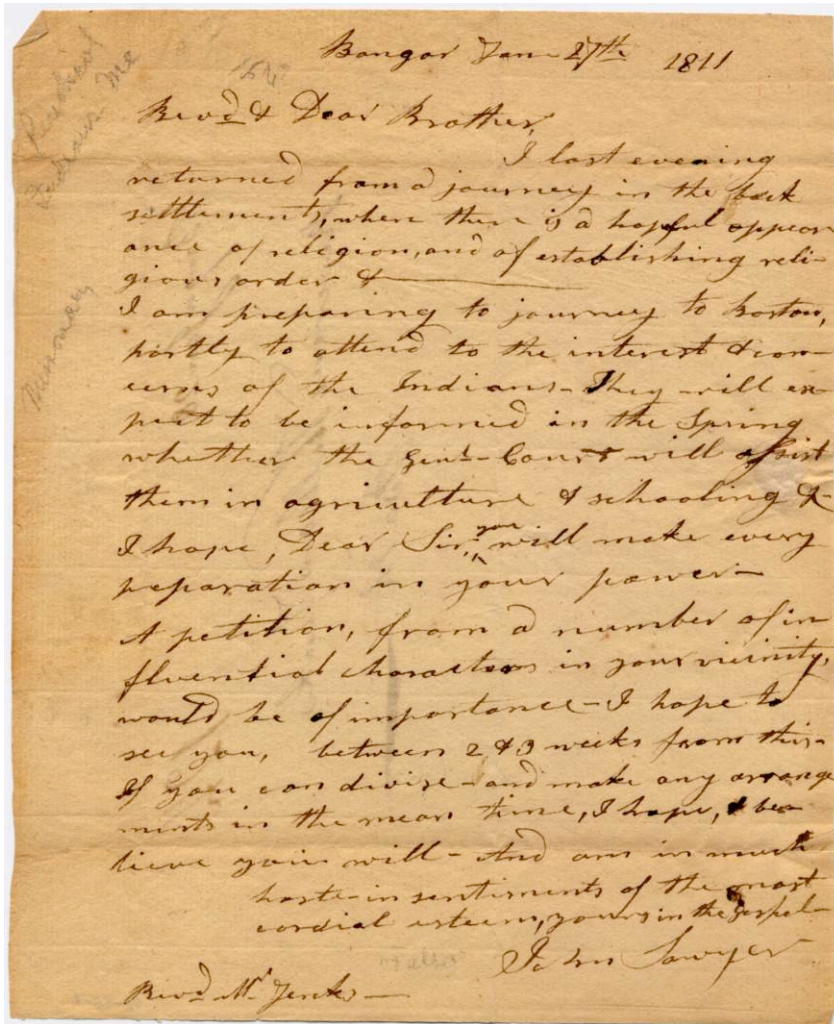 Bangor Jan 27th 1811
Revd & Dear Brother,
I last evening
returned from a journey in the back
settlements, where there is a hopeful appear
ance of religion, and of establishing reli-
gious order &
I am preparing to journey to Boston,
partly to attend to the interest & con-
cerns of the Indians- They will ex-
pect to be informed in the Spring
whether the Genl- Court will assist
them in agriculture & schooling &
I hope, Dear Sir, you will make every
preparation in your power-
A petition, from a number of in
fluential characters in your vicinity,
would be of importance- I hope to
see you, between 2 & 3 weeks from this-
If you can divise- and make any arrange
ments in the mean time, I hope, & be-
lieve you will- And am in much
haste- in sentiments of the most
cordial esteem, yours in the Gospel-
John Sawyer
Revd Mr Jenks-
Indians Me
Missionary